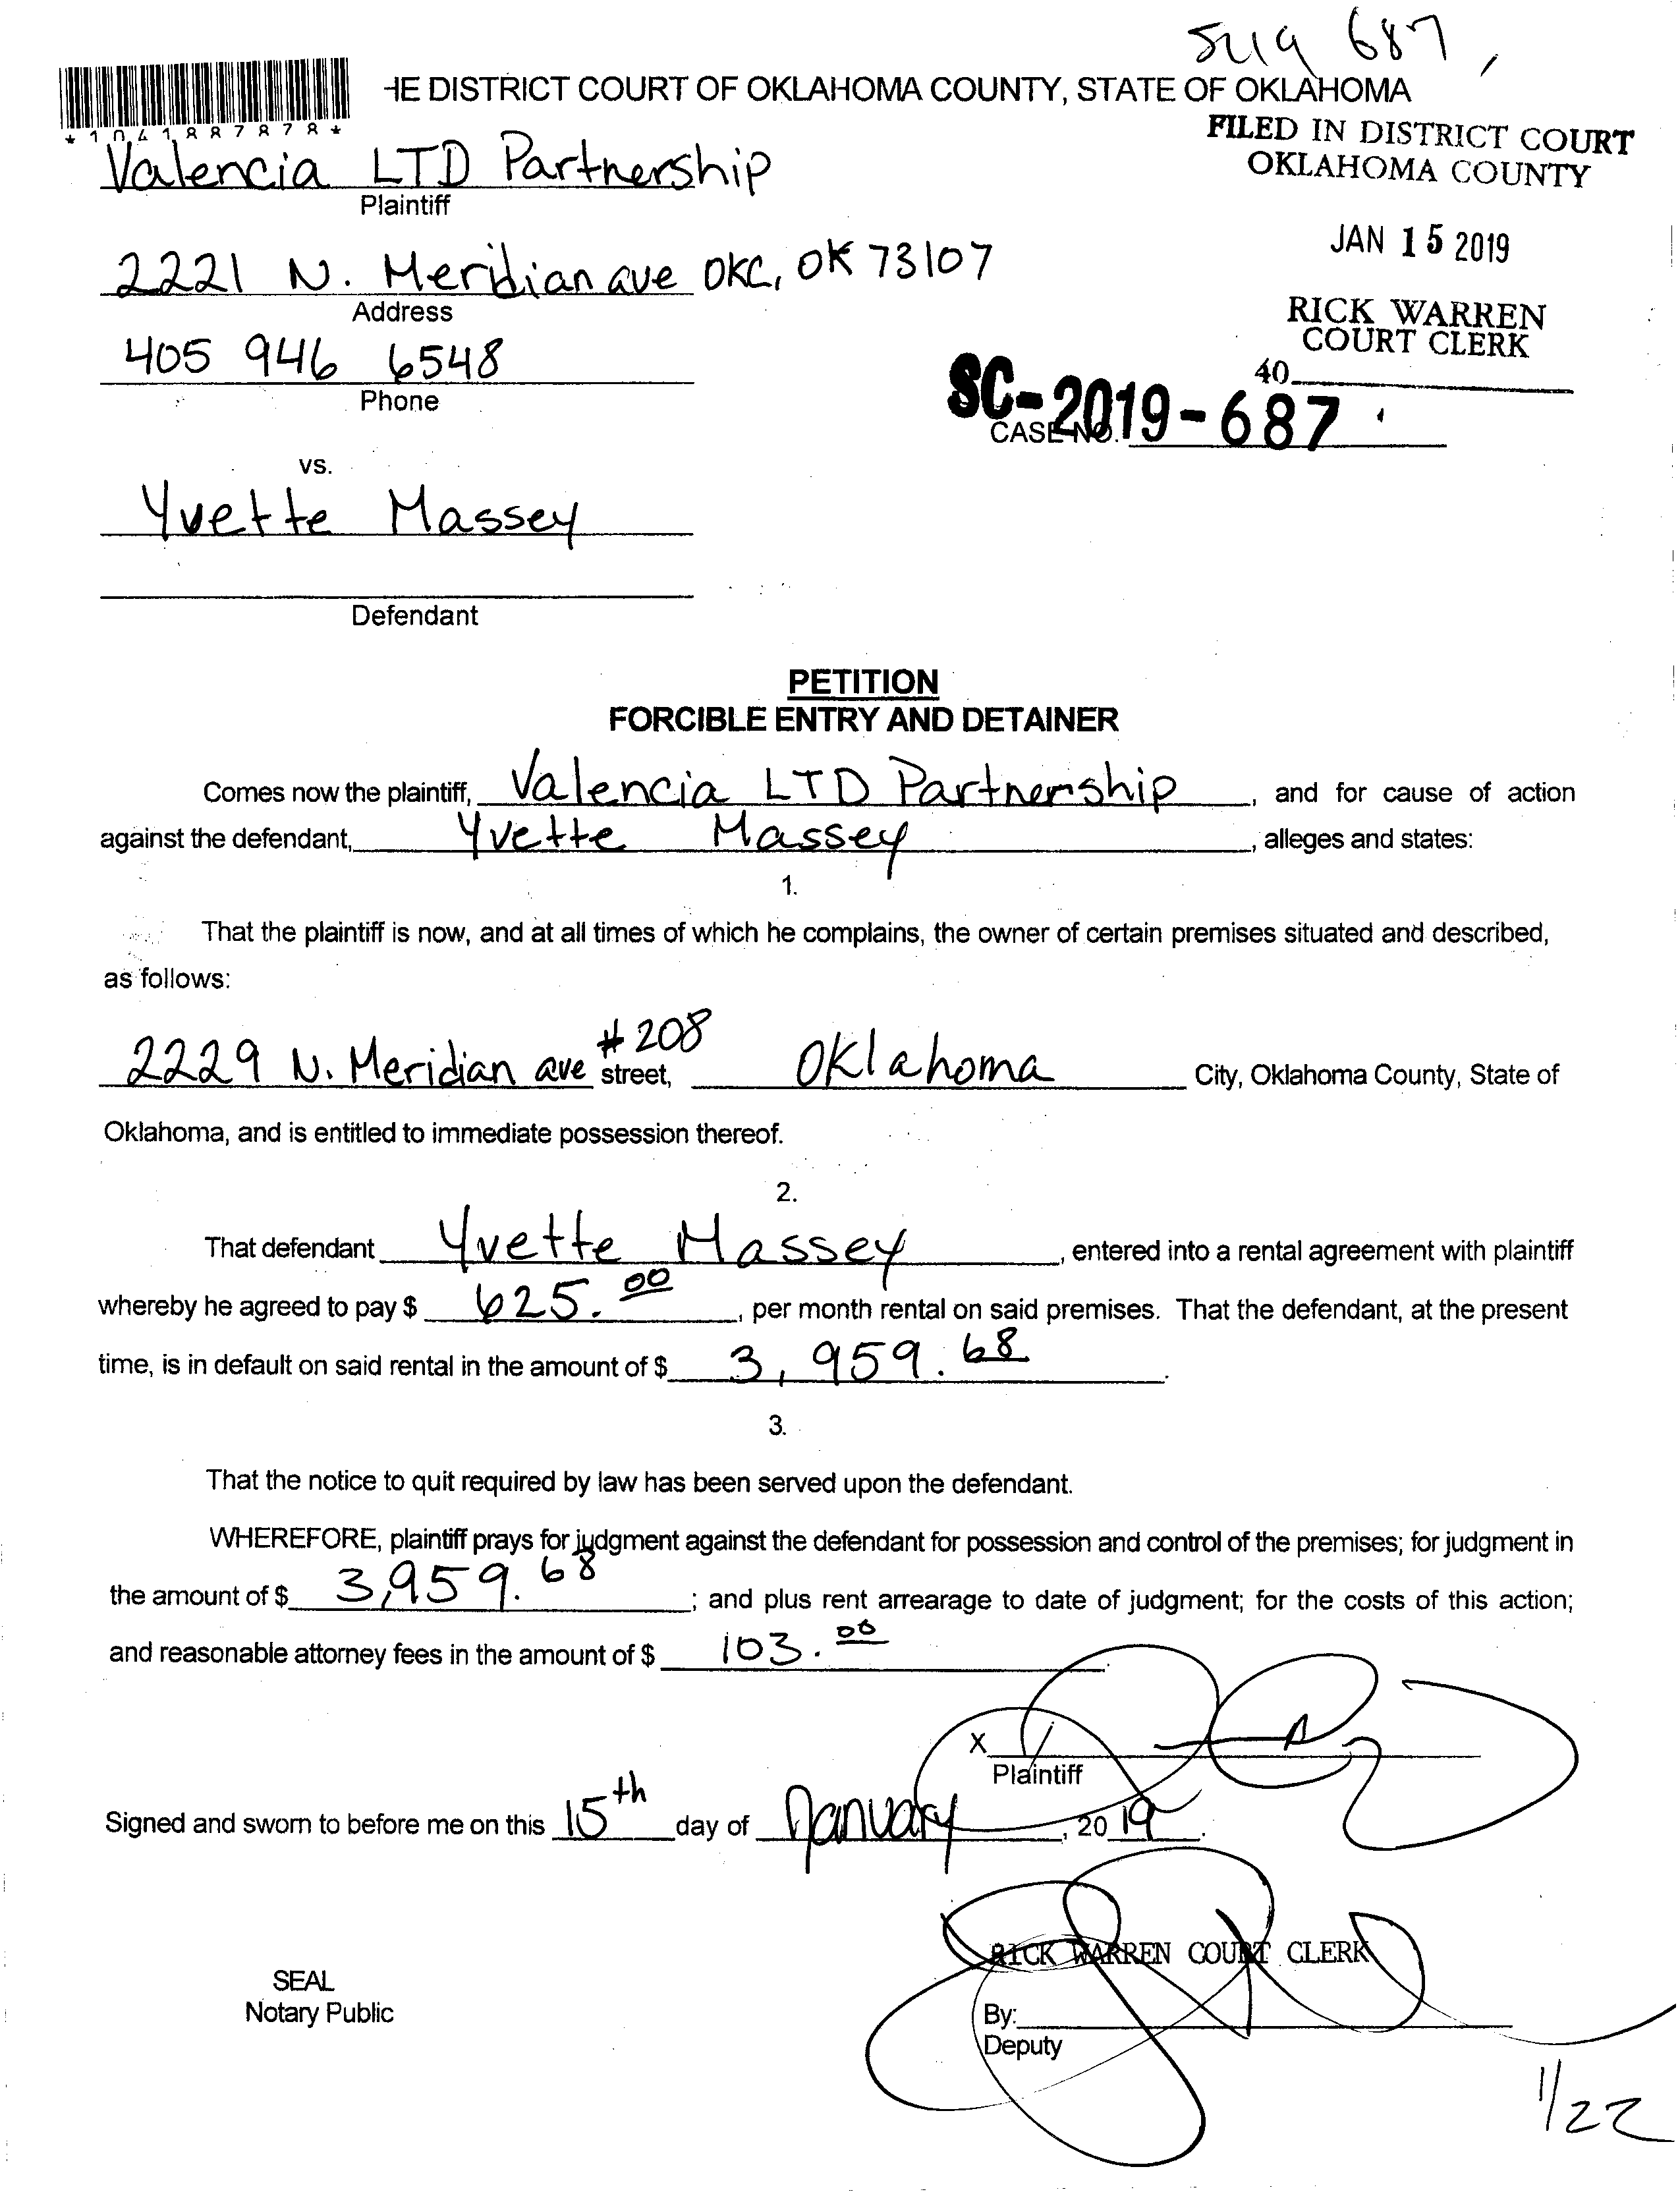 687
HE DISTRICT COURT OF OKLAHOMA COUNTY, STATE OF OKLAHOMA
*1041887878*
FILED IN DISTRICT COURT
OKLAHOMA COUNTY
Valencia LTD Partnership
Plaintiff
JAN 15 2019
2221 N. Meridian ave OKC, OK 73107
Address
RICK WARREN
COURT CLERK
405 946 6548
Phone
40
SC-2019-687
CASE NO.
vs.
Yvette Massey
Defendant
PETITION
FORCIBLE ENTRY AND DETAINER
Comes now the plaintiff, Valencia LTD Partnership, and for cause of action
against the defendant, Yvette Massey, alleges and states:
1.
That the plaintiff is now, and at all times of which he complains, the owner of certain premises situated and described,
as follows:
2229 N. Meridian ave #208 street, Oklahoma City, Oklahoma County, State of
Oklahoma, and is entitled to immediate possession thereof.
2.
That defendant Yvette Massey, entered into a rental agreement with plaintiff
whereby he agreed to pay $ 625.00, per month rental on said premises. That the defendant, at the present
time, is in default on said rental in the amount of $ 3,959.68.
3.
That the notice to quit required by law has been served upon the defendant.
WHEREFORE, plaintiff prays for judgment against the defendant for possession and control of the premises; for judgment in
the amount of $ 3,959.68; and plus rent arrearage to date of judgment; for the costs of this action;
and reasonable attorney fees in the amount of $ 103.00.
X
Plaintiff
Signed and sworn to before me on this 15th day of January, 2019.
RICK WARREN COURT CLERK
SEAL
Notary Public
By:
Deputy
1/22